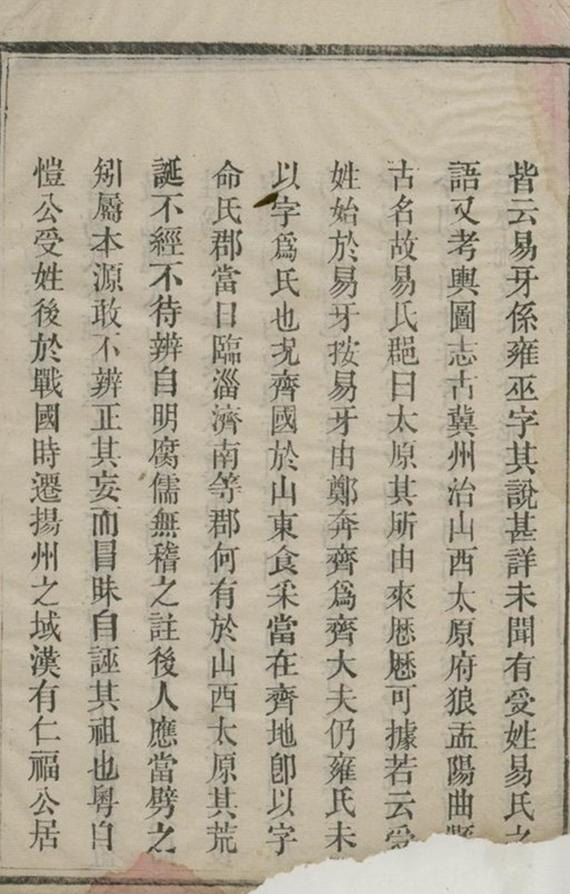 皆云易牙係雍巫字其說甚詳未聞有受姓易氏之
語又考輿圖志古冀州治山西太原府狼盂陽曲縣
古名故易氏郡曰太原其所由來歷歷可據若云受
姓始於易牙按易牙由鄭奔齊爲齊大夫仍雍氏未
以字爲氏也况齊國於山東食采當在齊地卽以字
命氏郡當曰臨淄濟南等郡何有於山西太原其荒
誕不經不待辨自明腐儒無稽之註後人應當劈之
矧屬本源敢不辨正其妄而冐昧自誣其祖也粤自
愷公受姓後於戰國時遷揚州之域漢有仁福公居